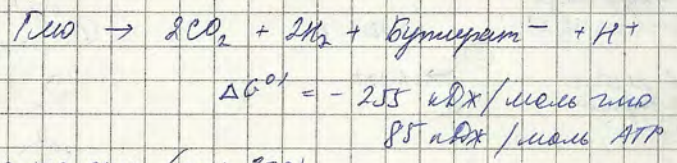 Глю → 2CO₂ + 2H₂ + Бутират⁻ + H⁺
ΔG⁰' = - 255 кДж/моль глю
85 кДж/моль ATP